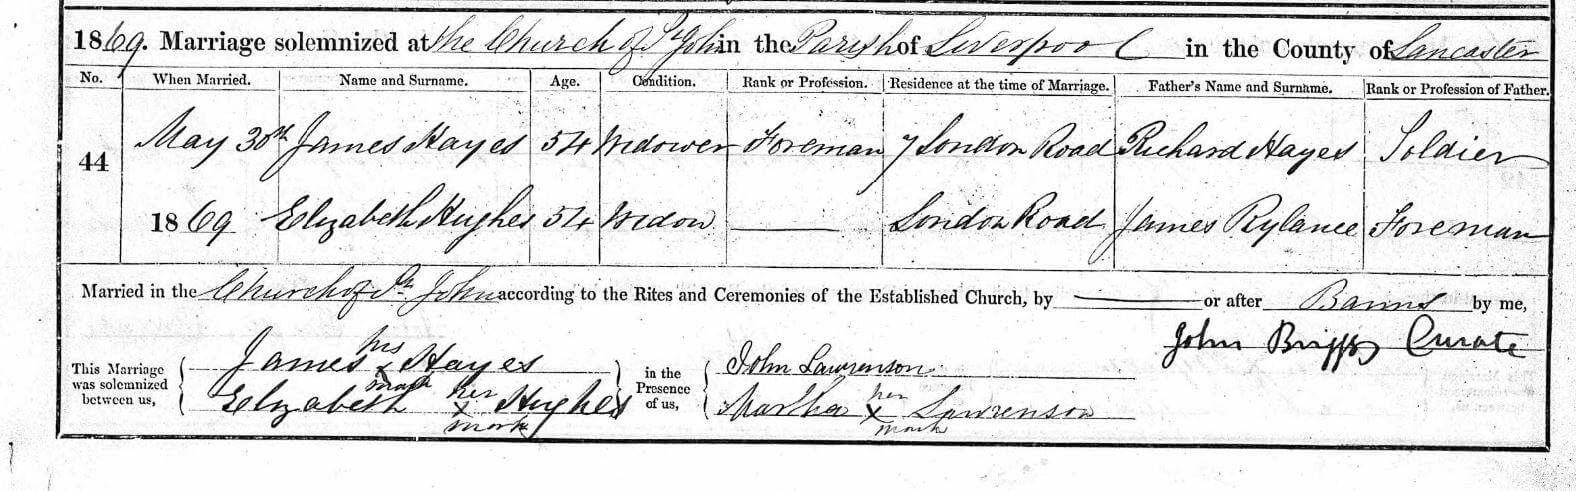 1869. Marriage solemnized at the Church of St John in the Parish of Liverpool in the County of Lancaster
No. When Married. Name and Surname. Age. Condition. Rank or Profession. Residence at the time of Marriage. Father's Name and Surname. Rank or Profession of Father.
44 May 30th James Hayes 54 Widower Foreman 7 London Road Richard Hayes Soldier
1869 Elizabeth Hughes 54 Widow —— London Road James Rylance Foreman
Married in the Church of St John according to the Rites and Ceremonies of the Established Church, by —— or after Banns by me,
John Briggs Curate
This Marriage was solemnized between us,
James his x mark Hayes
Elizabeth her x mark Hughes
in the Presence of us,
John Lawrenson
Martha her x mark Lawrenson